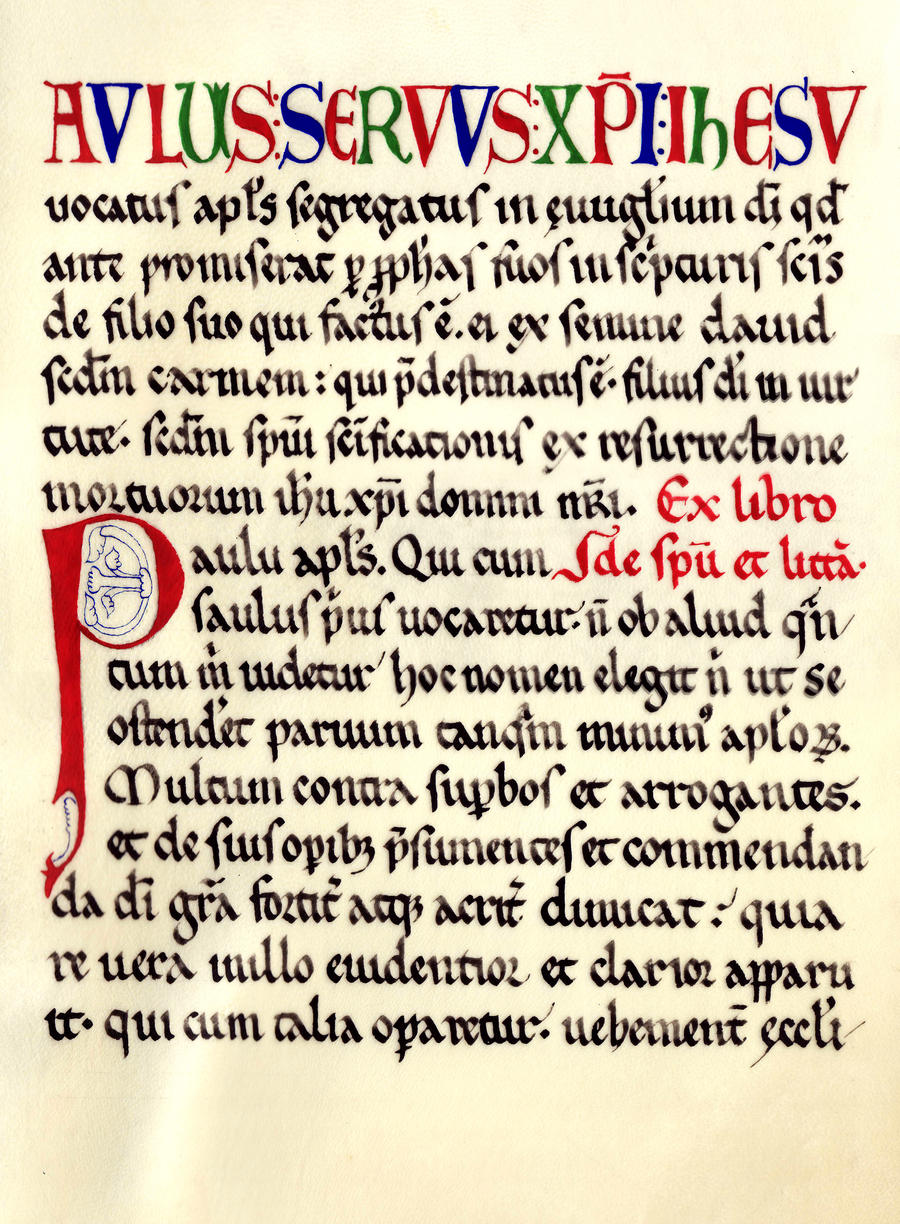 AVLUS:SERVVS:XP̄I:IhESV
uocatus apl's segregatus in ęuugl'ium dī qd'
ante promiserat ꝑ ꝓph'as suos in scripturis scīs
de filio suo qui factus ē. ei ex semine dauid
scdm̄ carnem : qui p̄destinatus ē· filius dī in uir
tute· scdm̄ spm̄ scīficationis ex resurrectione
mortuorum ih'u xp̄i domini nr̄i. Ex libro
Paulu apl's. Qui cum S de spū et litt̄a·
saulus p̄us uocaretur· n̄ ob aliud qn̄
tum m̄ uidetur hoc nomen elegit n̄ ut se
ostend'et paruum tanqm̄ minimꝰ apl'oꝝ.
Multum contra suꝑbos et arrogantes.
et de suis oꝑibꝫ p̄sumentes et commendan
da dī grā fortit̄ atqꝫ acrit̄ dimicat :' quia
re uera nullo euidentior et clarior apparu
it· qui cum talia oꝑaretur· uehement̄ ęccl'i